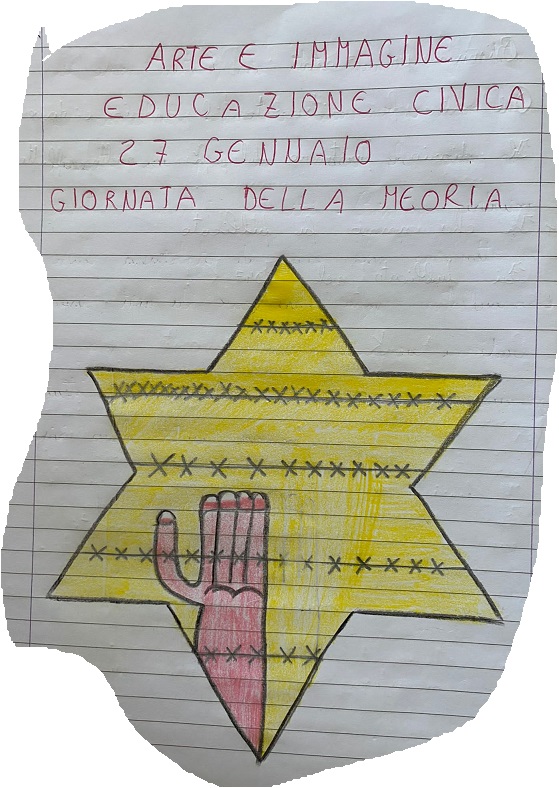 ARTE E IMMAGINE
EDUCAZIONE CIVICA
27 GENNAIO
GIORNATA DELLA MEORIA